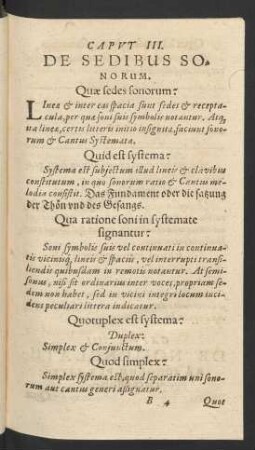 CAPVT III.
DE SEDIBUS SO-
NORUM.
Quæ sedes sonorum?
Lineæ & inter eas spacia sunt sedes & recepta-
cula, per quæ soni suis symbolis notantur. Atq;
lineæ, certis literis initio insignitæ, faciunt sono-
rum & Cantus Systemata.
Quid est systema?
Systema est subjectum illud lineis & clavibus
constitutum, in quo sonorum ratio & Cantus me-
lodia consistit. Das Fundament oder die satzung
der Thön vnd des Gesangs.
Qua ratione soni in systemate
signantur?
Soni symbolis suis vel continuati in continua-
tis vicinisq; lineis & spaciis, vel interrupti transi-
liendis quibusdam in remotis notantur. At semi-
sonus, nisi sit ordinarius inter voces, propriam se-
dem non habet, sed in vicini integri locum inci-
dens peculiari litera indicatur.
Quotuplex est systema?
Duplex:
Simplex & Conjunctum.
Quod simplex?
Simplex systema est, quod separatim uni sono-
rum aut cantus generi assignatur.
B 4 Quot